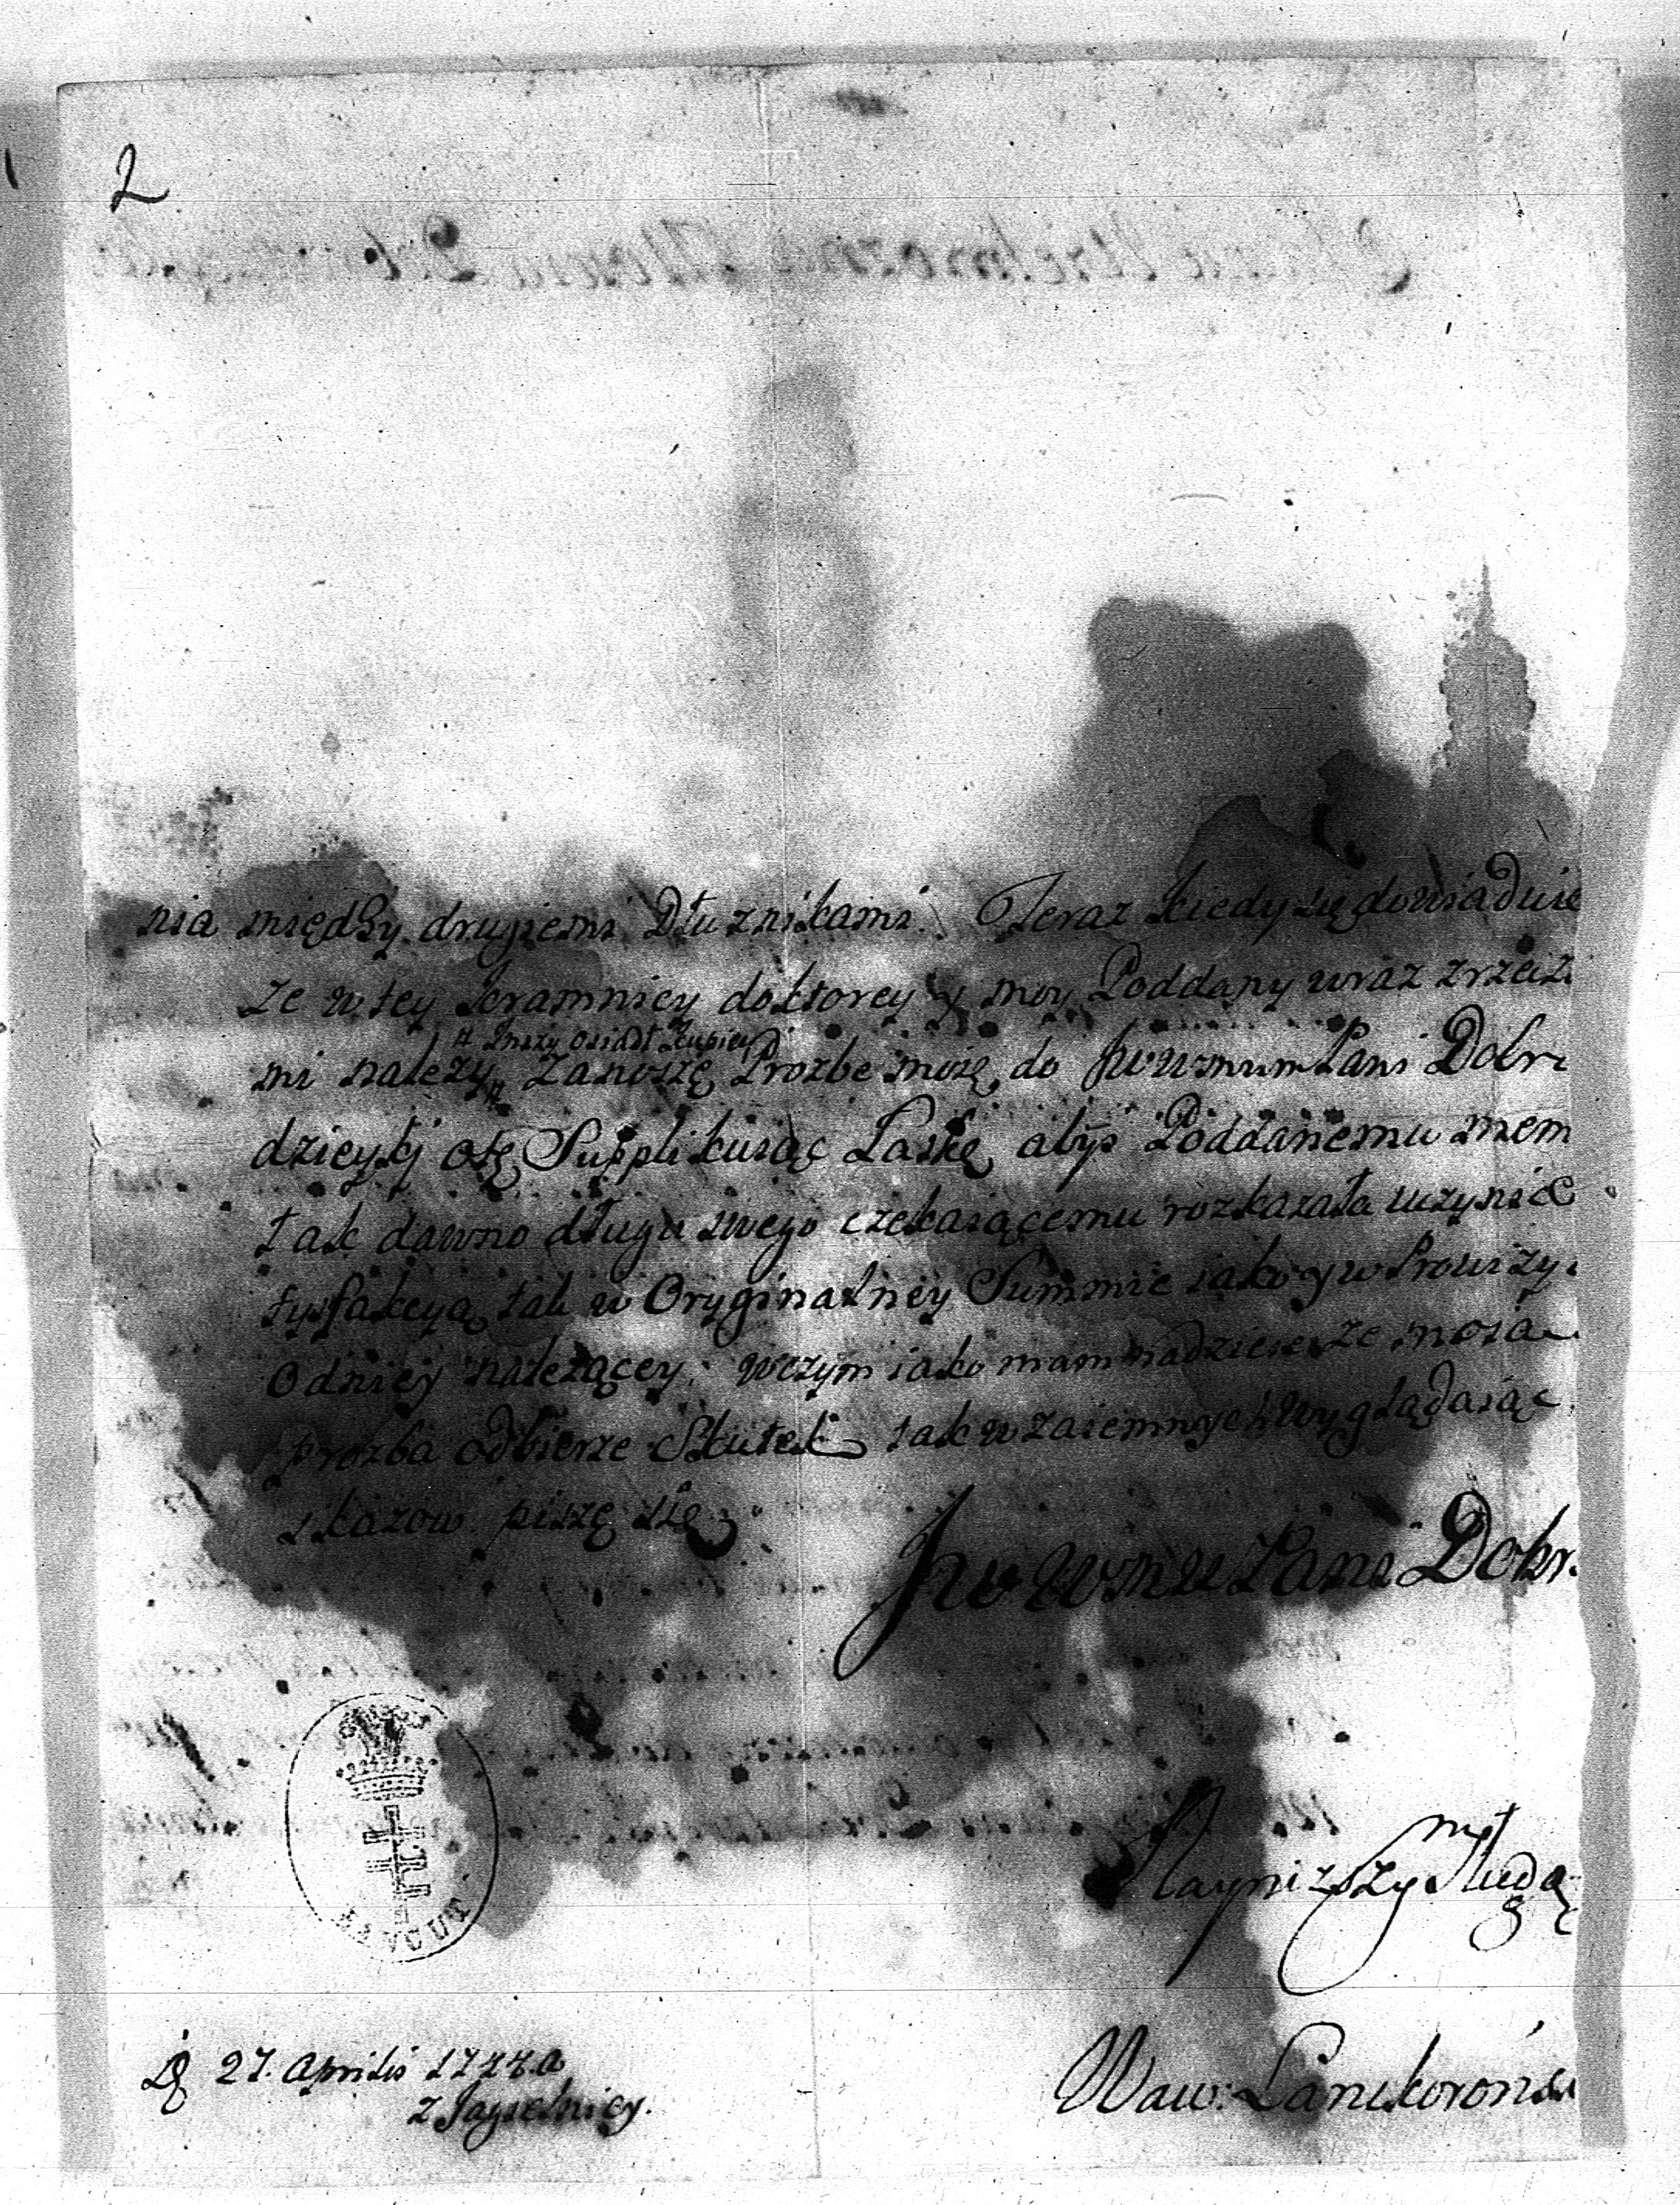 2
nia między drugiemi Dłuznikami. Teraz kiedy się dowiaduię
ze w tey kramnicy doktorey y moy Poddany wraz z
# Inszy osiadł Kupiec
mi należy # Zanoszę Prozbe moię do JwWmm Pani Dobr
dzieyki otę Supplikuiąc Łaskę abyś Poddanemu mem
tak dawno długu swego czekaiącemu rozkazała uczynić
tysfakcyą tak w Oryginalney Summie iako y w Prowizyi
Odniey należącey; wczym iako mam nadzieię ze moia
prozba odbierze Skutek tak wzaiemnych wyglądaiąc
skazow piszę się
JwWmm Pani Dobr.
Nayniższy Sługa
ŁAŃCUT
D 27. Aprilis 1744. a
z Jagielnicy.
Waw: Lanckoroński